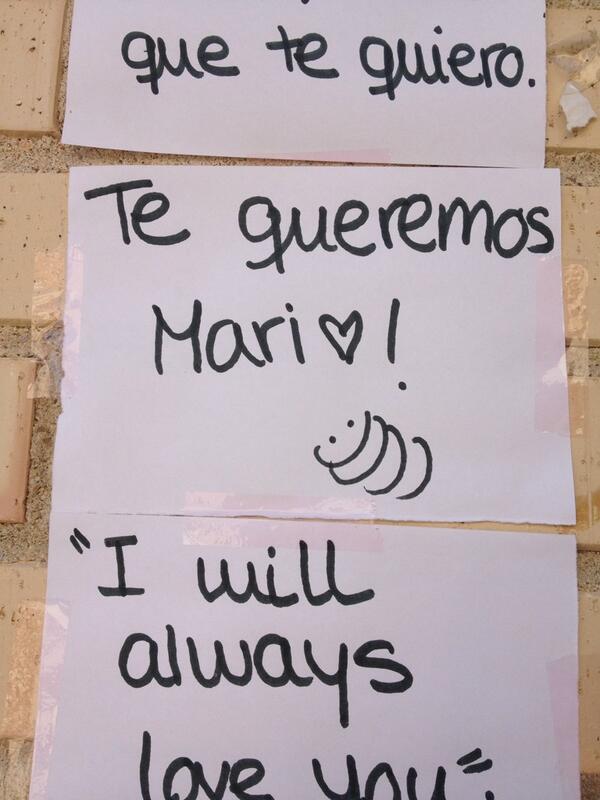 que te quiero.
Te queremos
Mari♡!
"I will
always
love you".